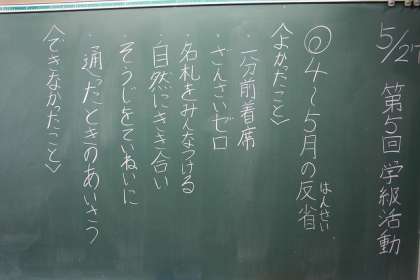 5/21 第5回 学級活動
◎4〜5月の反省
はんせい
〈よかったこと〉
・一分前着席
・ざんさいゼロ
・名札をみんなつける
・自然にきき合い
・そうじをていねいに
・通ったときのあいさつ
〈できなかったこと〉